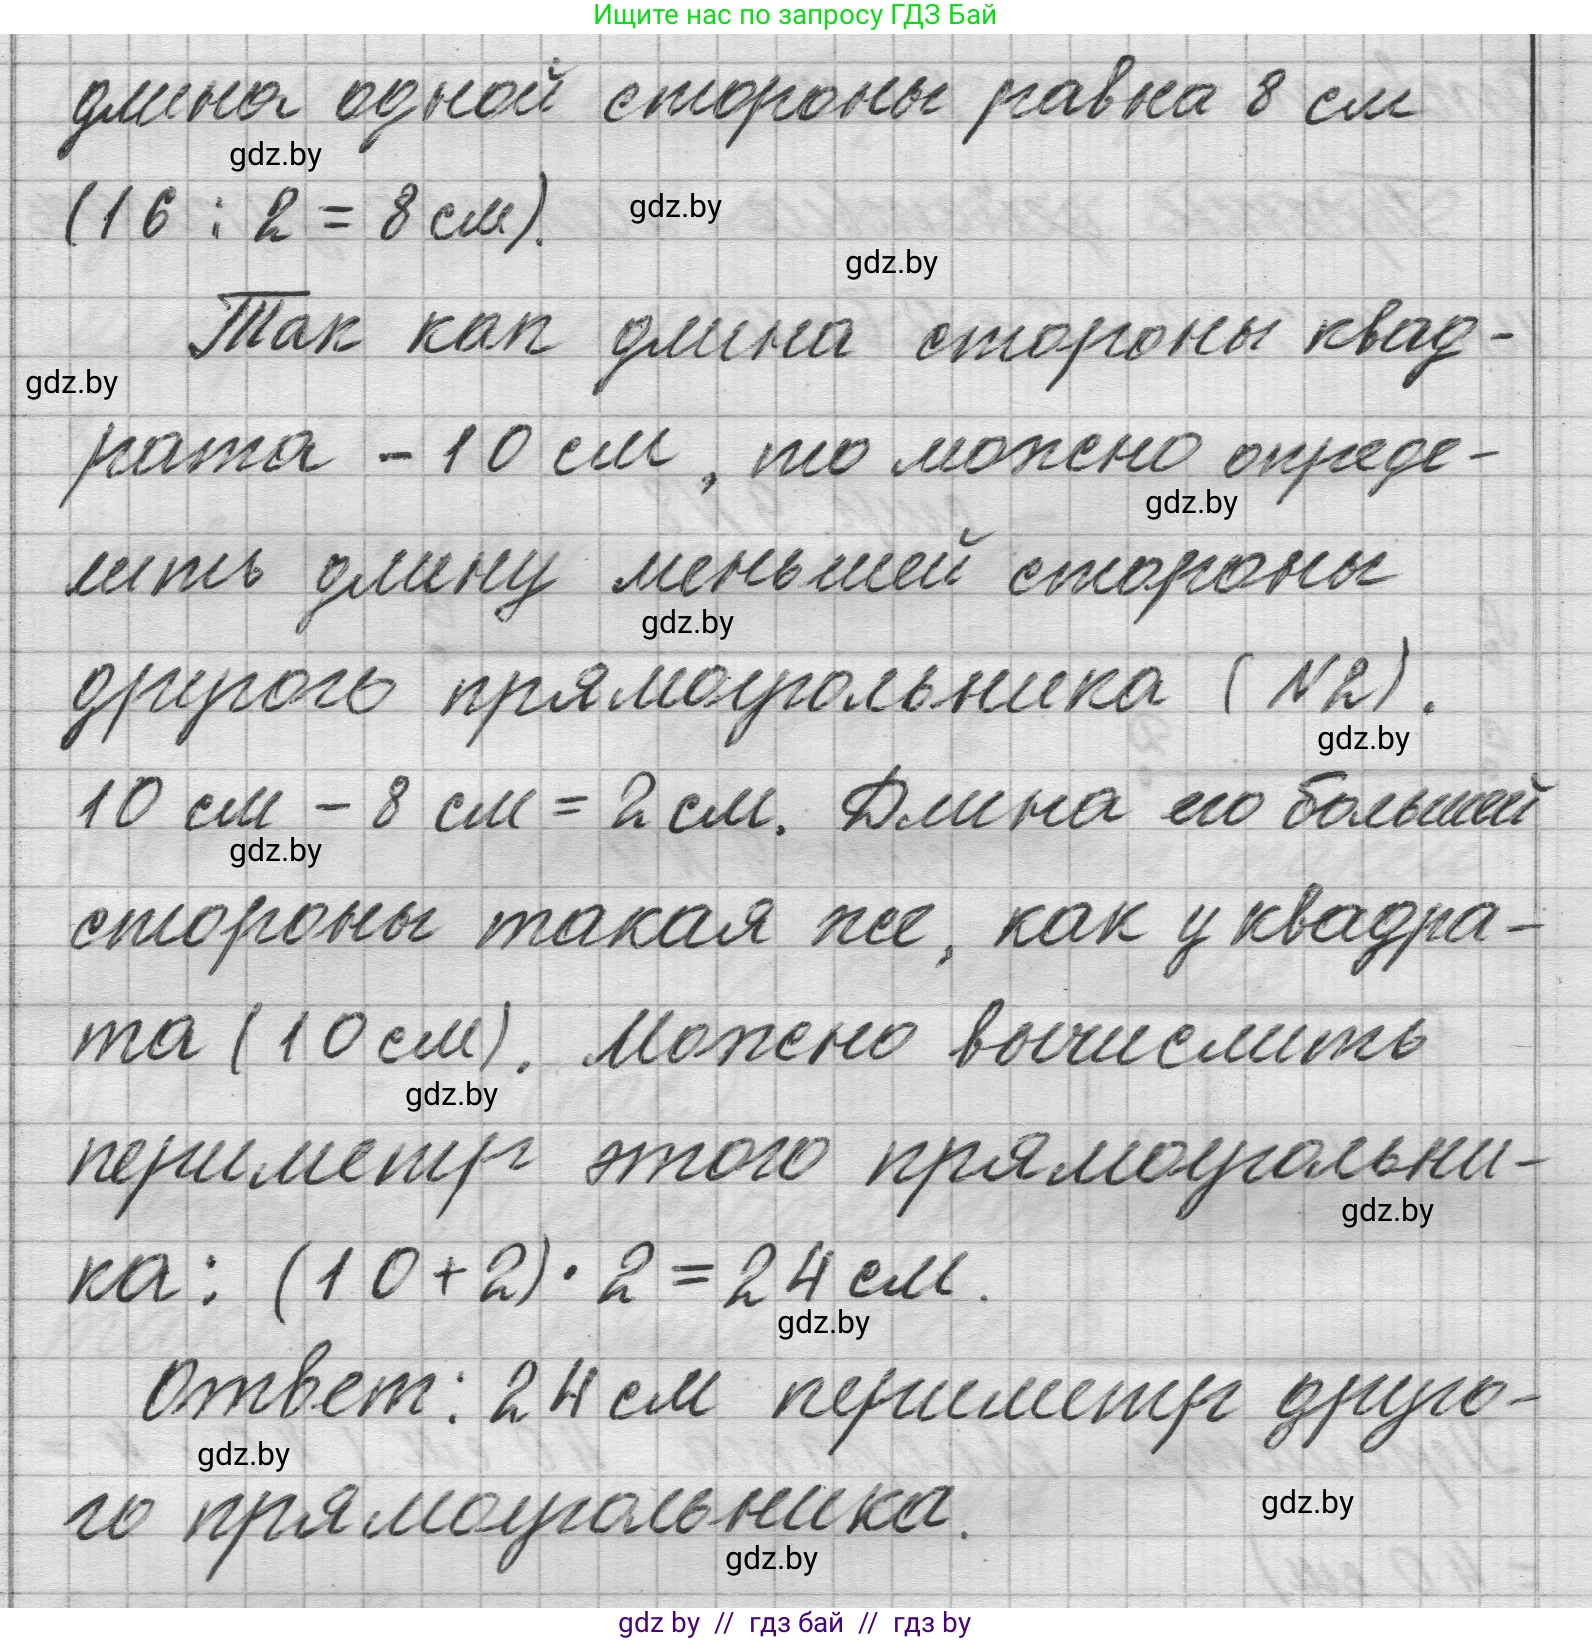 Ищите нас по запросу ГДЗ Бай
длина одной стороны равна 8 см
gdz.by
(16 : 2 = 8 см).
gdz.by
gdz.by
Так как длина стороны квад-
gdz.by
рата - 10 см, то можно опреде-
gdz.by
лить длину меньшей стороны
gdz.by
другого прямоугольника (N2).
gdz.by
10 см - 8 см = 2 см. Длина его большей
gdz.by
стороны такая же, как у квадра-
та (10 см). Можно вычислить
gdz.by
периметр этого прямоугольни-
gdz.by
ка: (10 + 2) · 2 = 24 см.
gdz.by
Ответ: 24 см периметр друго-
gdz.by
го прямоугольника.
gdz.by
gdz.by
gdz by // гдз бай // гдз by